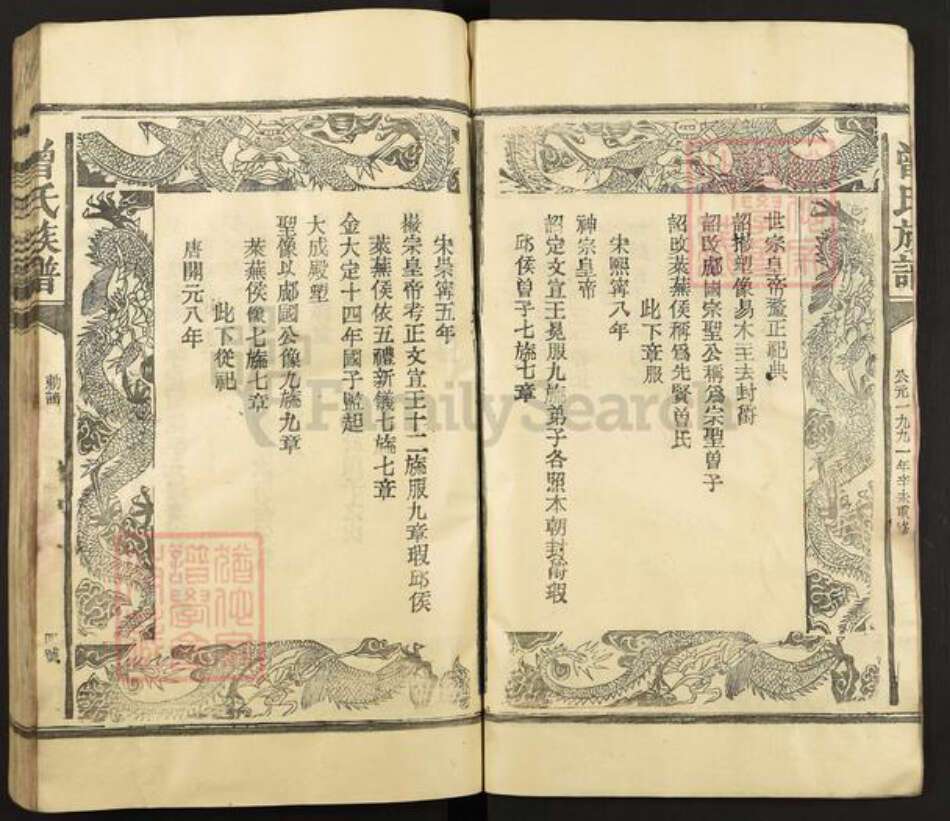 曾氏族譜
公元一九九一年辛未重修
世宗皇帝釐正祀典
詔撤塑像易木主去封衛
詔改郕國宗聖公稱為宗聖曾子
詔改萊蕪侯稱為先賢曾氏
此下章服
宋熙寧八年
神宗皇帝
詔定文宣王冕服九旒弟子各照本朝封衛瑕
邱侯曾子七旒七章
宋崇寧五年
徽宗皇帝考正文宣王十二旒服九章瑕邱侯
萊蕪侯依五禮新儀七旒七章
金大定十四年國子監起
大成殿塑
聖像以郕國公像九旒九章
萊蕪侯像七旒七章
此下從祀
唐開元八年
曾氏族譜
勅譜
號
FamilySearch